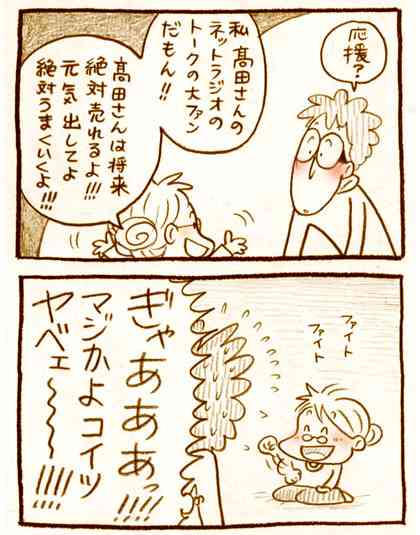 応援？
私 髙田さんの
ネットラジオの
トークの大ファン
だもん!!
髙田さんは将来
絶対売れるよ!!!
元気出してよ
絶対うまくいくよ!!!
ファイト
ファイト
ぎゃあああっ!!!!
マジかよコイツ
ヤベェ〜〜〜!!!!